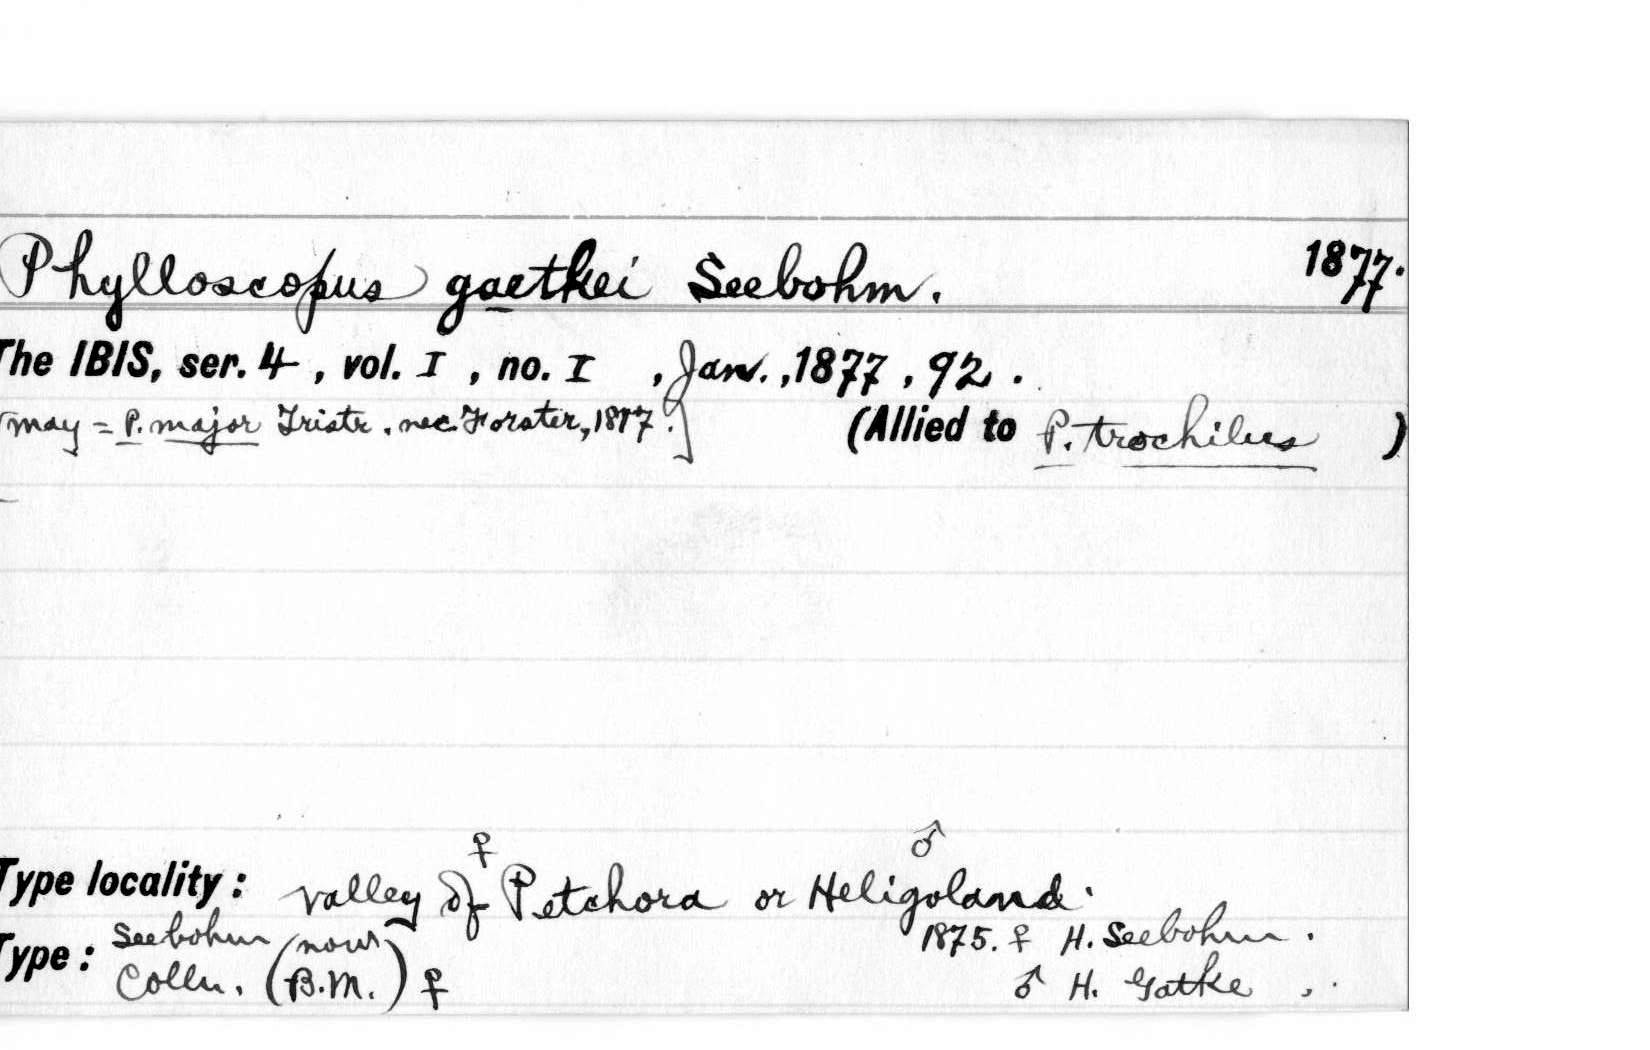 Phylloscopus gaetkei Seebohm. 1877.
The IBIS, ser. 4, vol. I, no. I, Jan., 1877, 92.
[may = P. major Tristr. nec. Forster, 1817.] (Allied to P. trochilus)
♀ ♂
Type locality: valley of Petchora or Heligoland.
Type: Seebohm (now 1875. ♀ H. Seebohm.
Colln. B.M.) ♀ ♂ H. Gatke,.